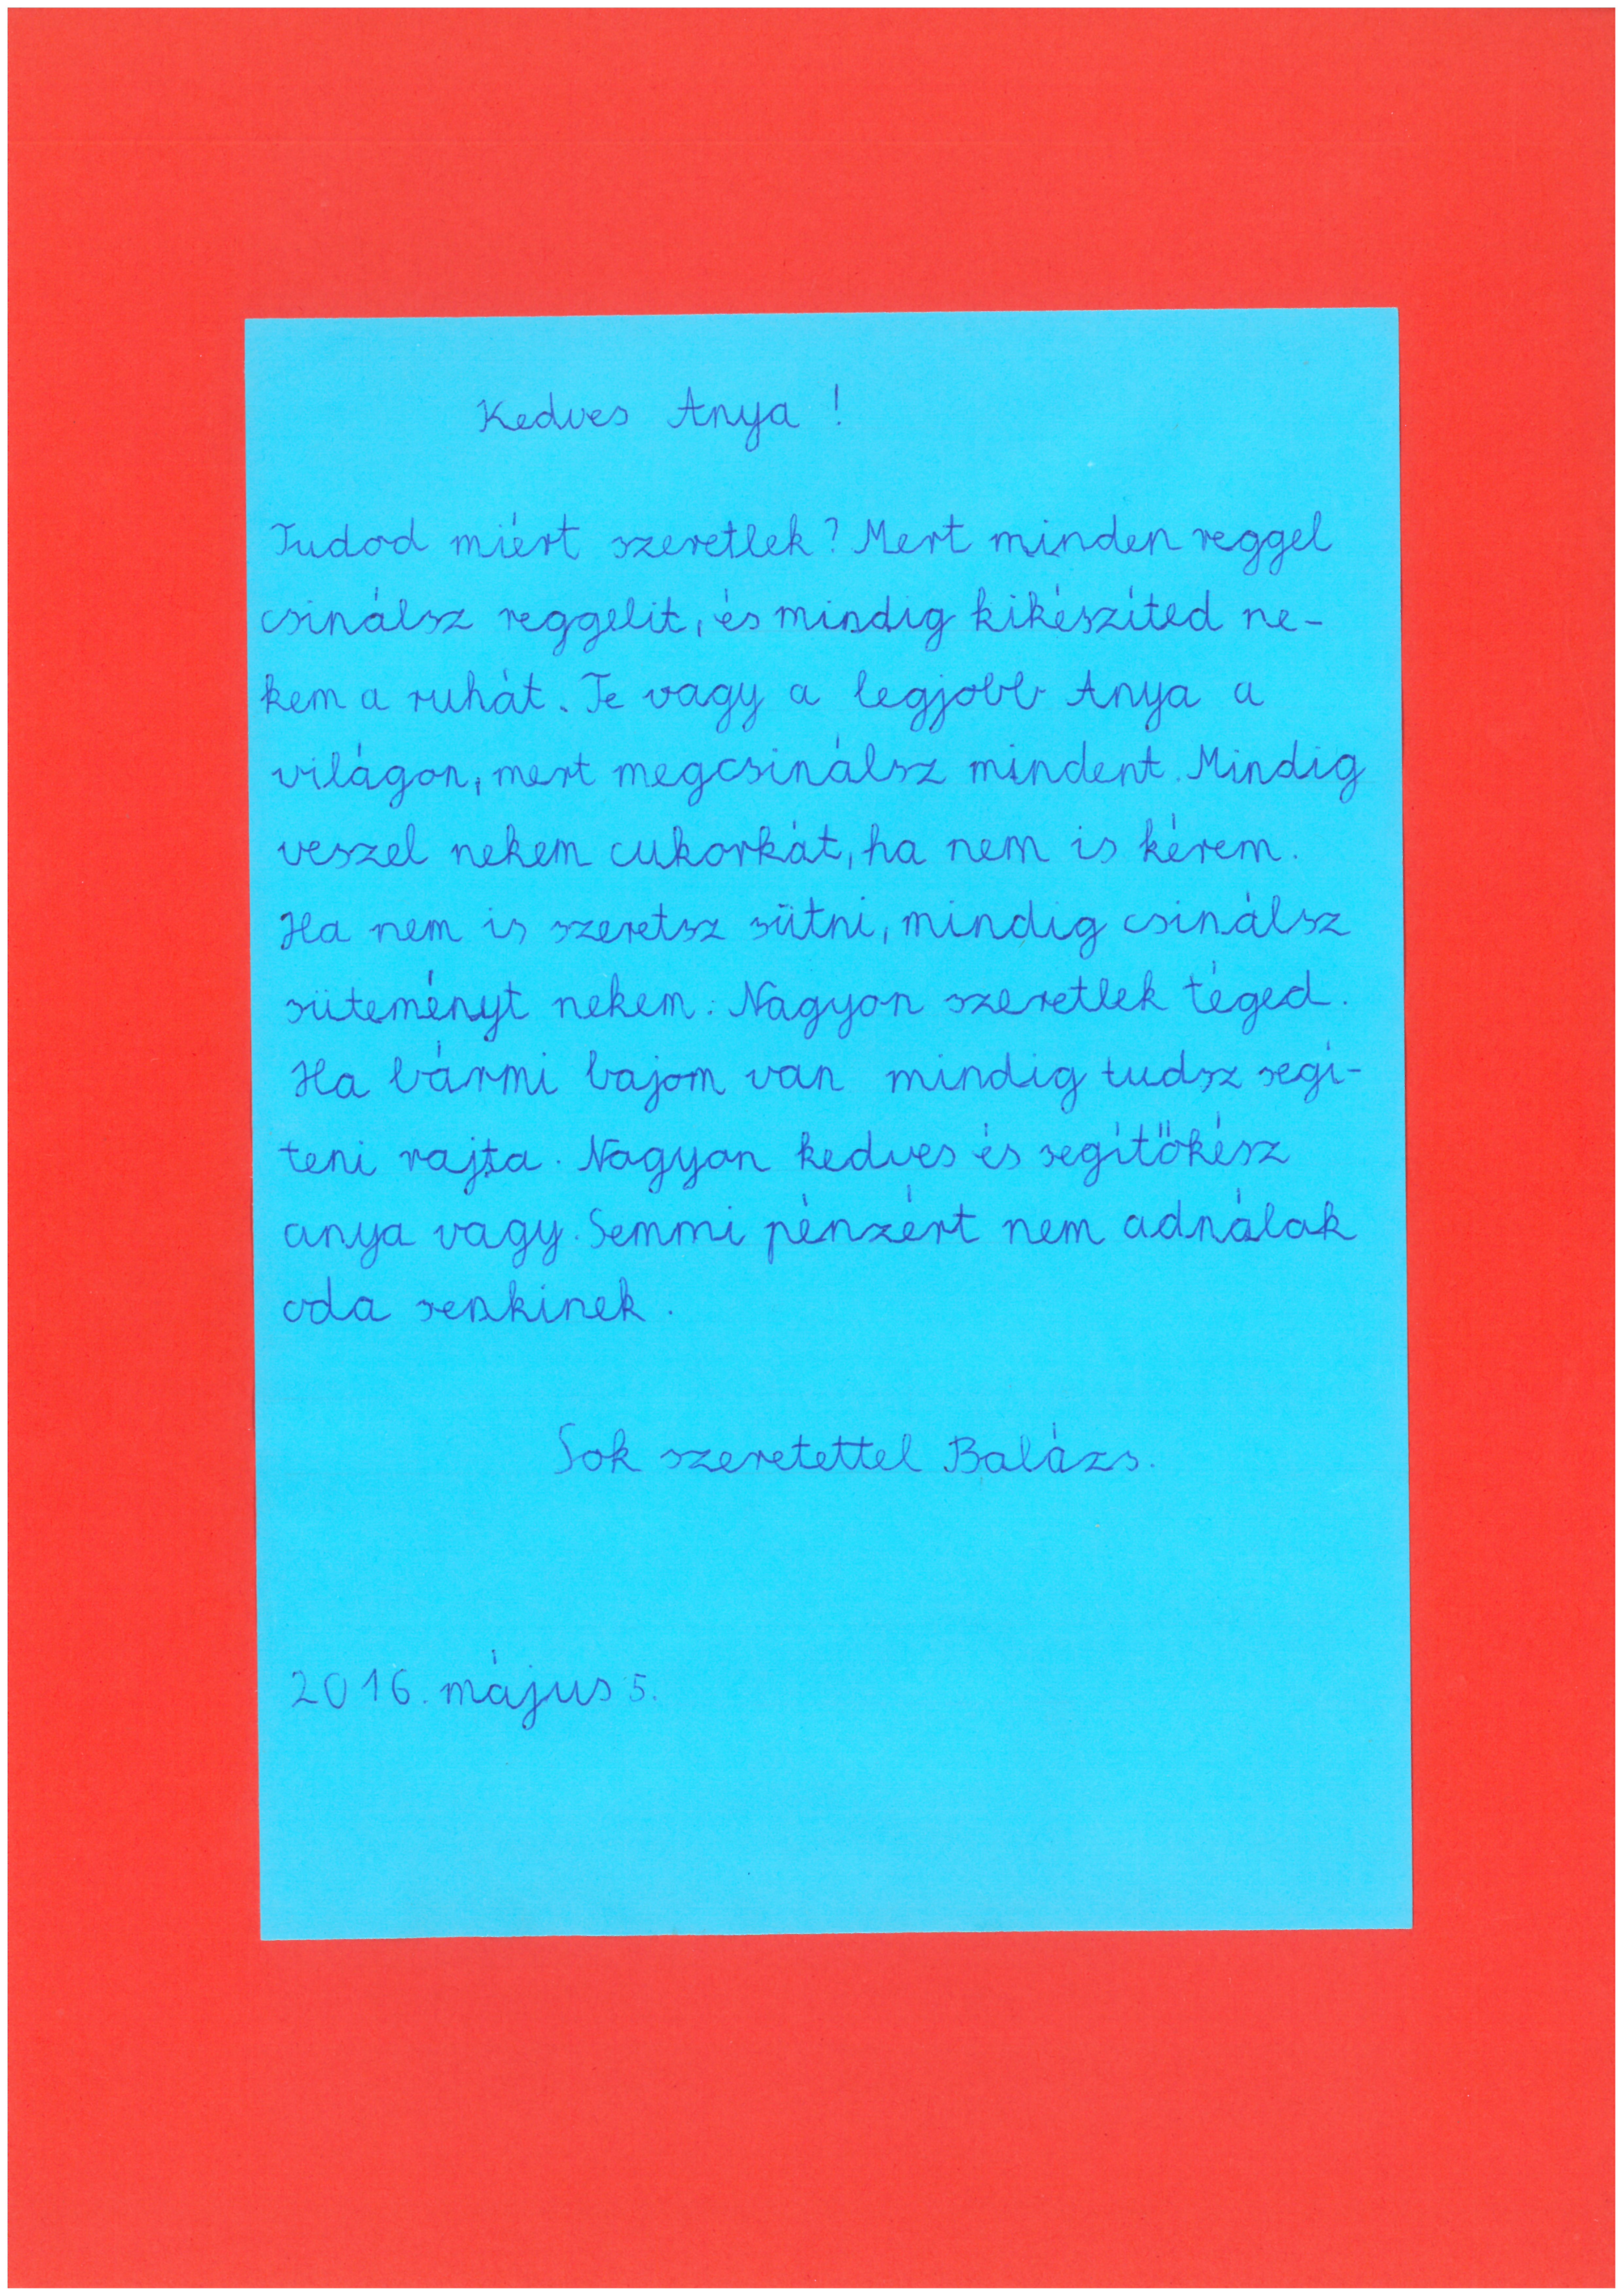 Kedves Anya !
Tudod miért szeretlek? Mert minden reggel
csinálsz reggelit, és mindig kikészíted ne-
kem a ruhát. Te vagy a legjobb Anya a
világon, mert megcsinálsz mindent. Mindig
veszel nekem cukorkát, ha nem is kérem.
Ha nem is szeretsz sütni, mindig csinálsz
süteményt nekem. Nagyon szeretlek téged.
Ha bármi bajom van mindig tudsz segí-
teni rajta. Nagyon kedves és segítőkész
anya vagy. Semmi pénzért nem adnálak
oda senkinek.
Sok szeretettel Balázs.
2016. május 5.